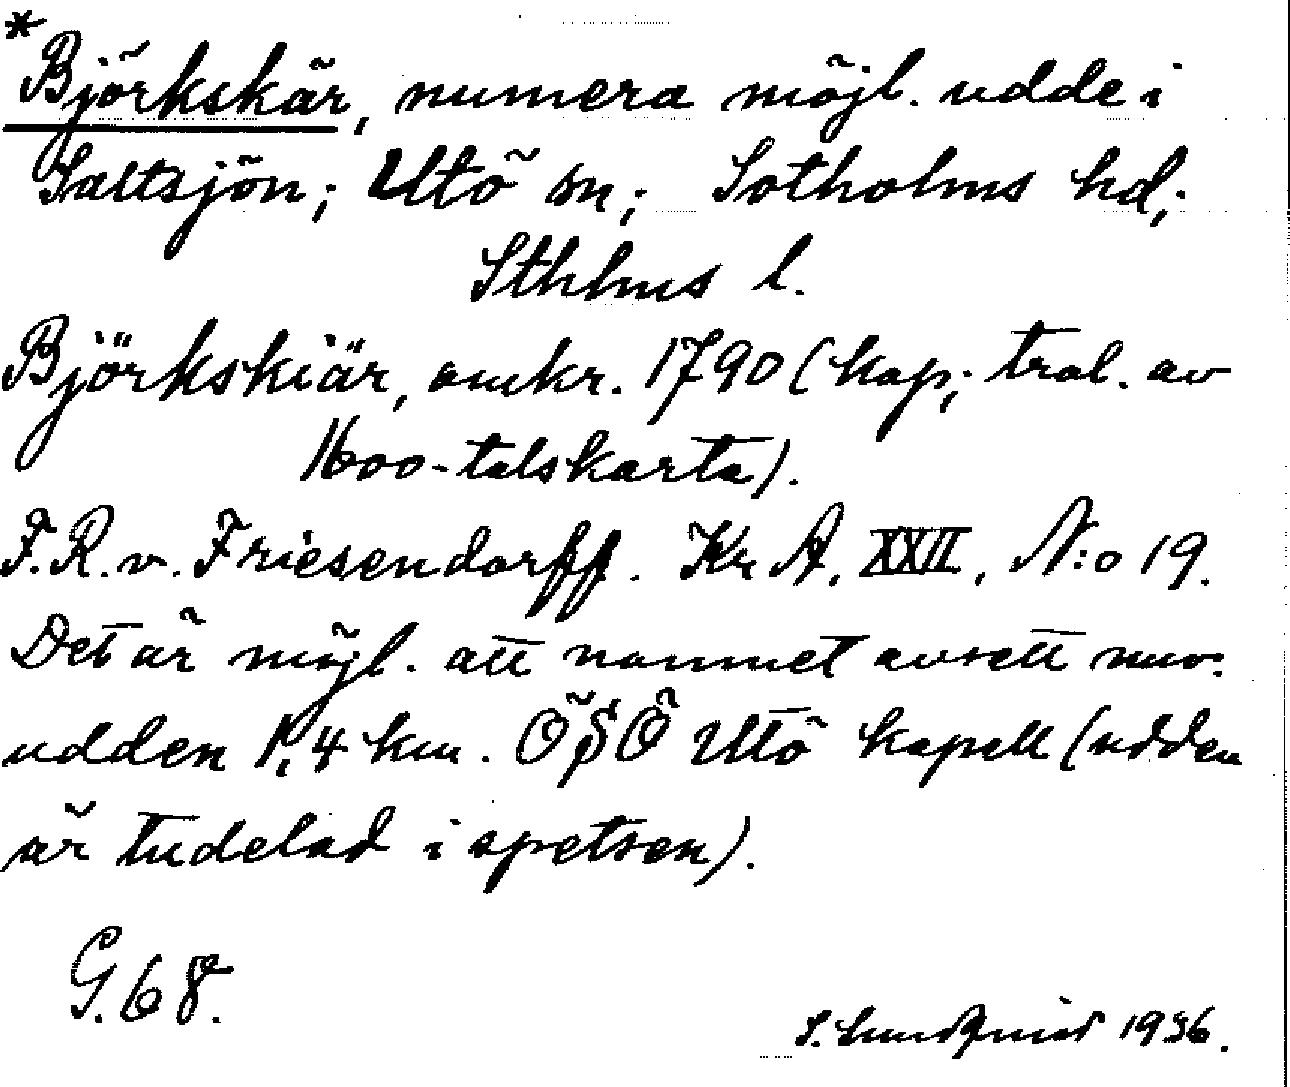 *Björkskär, numera möjl. udde i
Saltsjön; Utö sn; Sotholms hd;
Sthlms l.
Björkskiär, omkr. 1790 (kop; trol. av
1600-talskarta).
F. R. v. Friesendorff. Kr A, XXII, N:o 19.
Det är möjl. att namnet avsett nuv.
udden 1,4 km. ÖSÖ Utö kapell (udden
är tudelad i spetsen).
G. 68.
S. Lundqvist 1936.